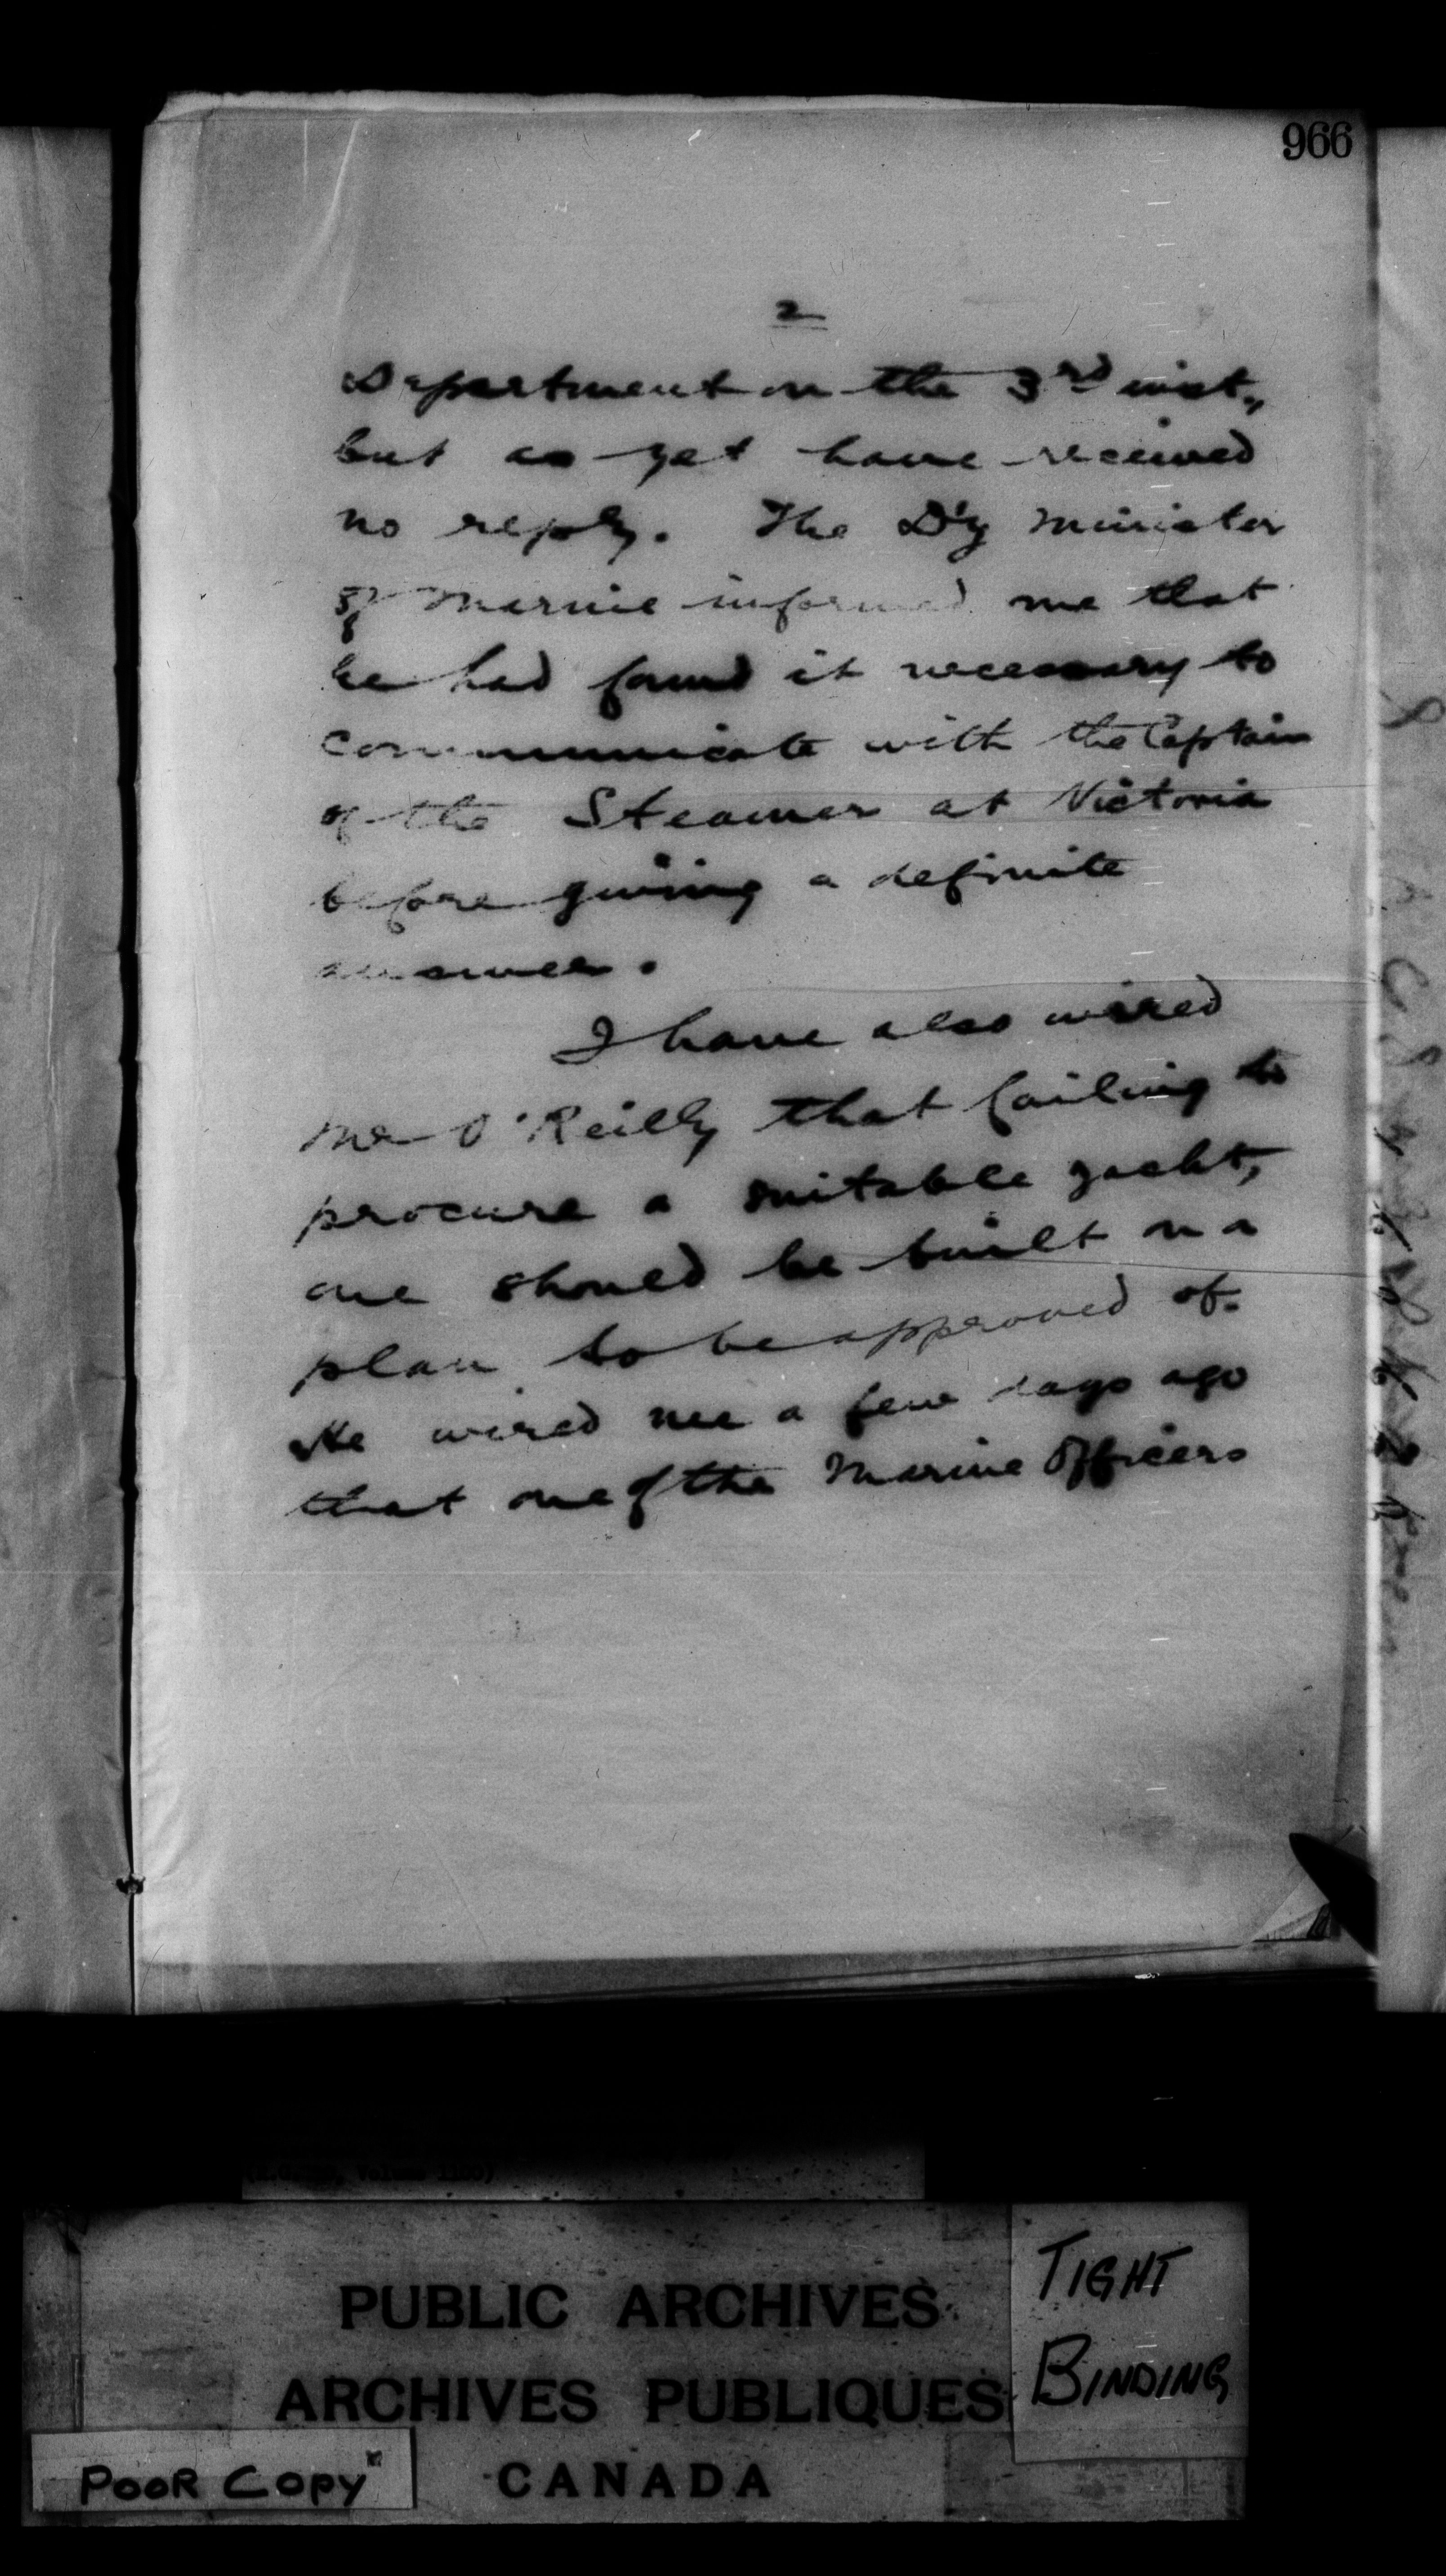 966
2
Department on the 3rd inst.,
but as yet have received
no reply. The D'y Minister
of Marine informed me that
he had found it necessary to
communicate with the Captain
of the Steamer at Victoria
before giving a definite
answer.
I have also wired
Mr O'Reilly that failing to
procure a suitable yacht,
one should be built on a
plan to be approved of.
He wired me a few days ago
that one of the Marine Officers
PUBLIC ARCHIVES
ARCHIVES PUBLIQUES
CANADA
TIGHT
BINDING
POOR COPY